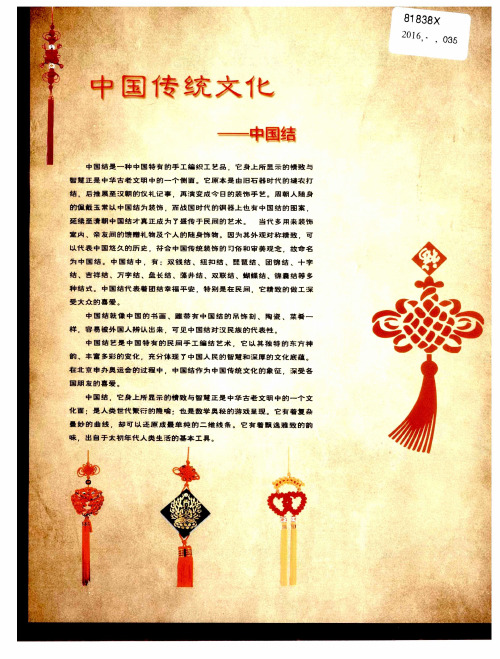 81838X
2016, . . 035
中国传统文化
——中国结
中国结是一种中国特有的手工编织工艺品，它身上所显示的情致与
智慧正是中华古老文明中的一个侧面。它原本是由旧石器时代的缝衣打
结，后推展至汉朝的仪礼记事，再演变成今日的装饰手艺。周朝人随身
的佩戴玉常以中国结为装饰，而战国时代的铜器上也有中国结的图案，
延续至清朝中国结才真正成为了盛传于民间的艺术。 当代多用来装饰
室内、亲友间的馈赠礼物及个人的随身饰物。因为其外观对称精致，可
以代表中国悠久的历史，符合中国传统装饰的习俗和审美观念，故命名
为中国结。中国结中，有：双钱结、纽扣结、琵琶结、团锦结、十字
结、吉祥结、万字结、盘长结、藻井结、双联结、蝴蝶结、锦囊结等多
种结式。中国结代表着团结幸福平安，特别是在民间，它精致的做工深
受大众的喜爱。
中国结就像中国的书画、雕带有中国结的吊饰刻、陶瓷、菜肴一
样，容易被外国人辨认出来，可见中国结对汉民族的代表性。
中国结艺是中国特有的民间手工编结艺术，它以其独特的东方神
韵、丰富多彩的变化，充分体现了中国人民的智慧和深厚的文化底蕴。
在北京申办奥运会的过程中，中国结作为中国传统文化的象征，深受各
国朋友的喜爱。
中国结，它身上所显示的情致与智慧正是中华古老文明中的一个文
化面；是人类世代繁衍的隐喻；也是数学奥秘的游戏呈现。它有着复杂
曼妙的曲线，却可以还原成最单纯的二维线条。它有着飘逸雅致的韵
味，出自于太初年代人类生活的基本工具。
福